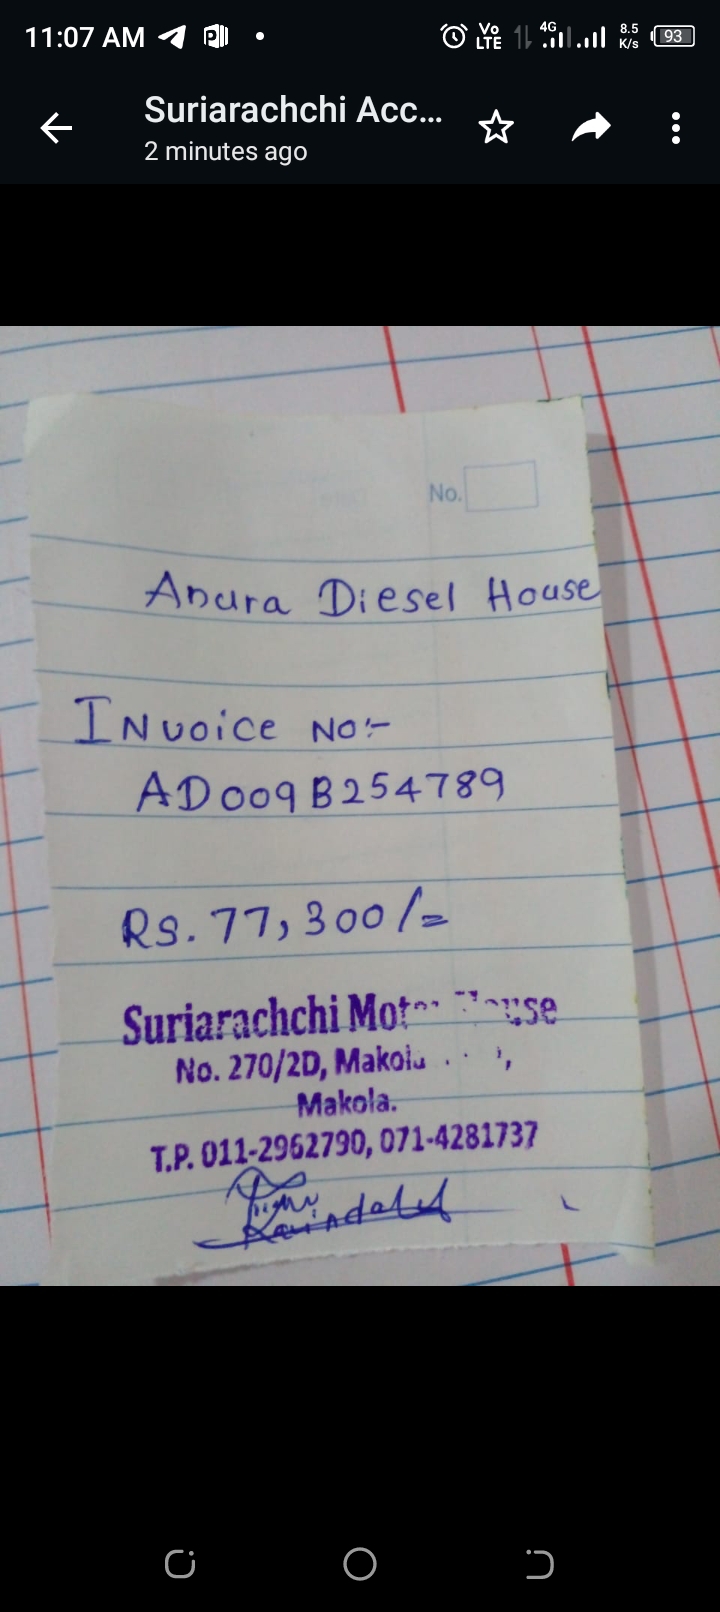 11:07 AM
Vo LTE 4G 8.5 K/s 93
Suriarachchi Acc...
2 minutes ago
No.
Anura Diesel House
Invoice No:-
AD009B254789
Rs. 77,300/=
Suriarachchi Motor House
No. 270/2D, Makola
Makola.
T.P. 011-2962790, 071-4281737